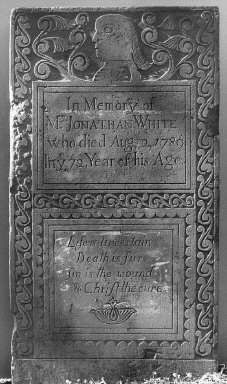 In Memory of
Mr. JONATHAN WHITE
who died Aug. 2, 1786
In ye 72 Year of his Age
Life is uncertain
Death is sure
Sin is the wound
& Christ the cure